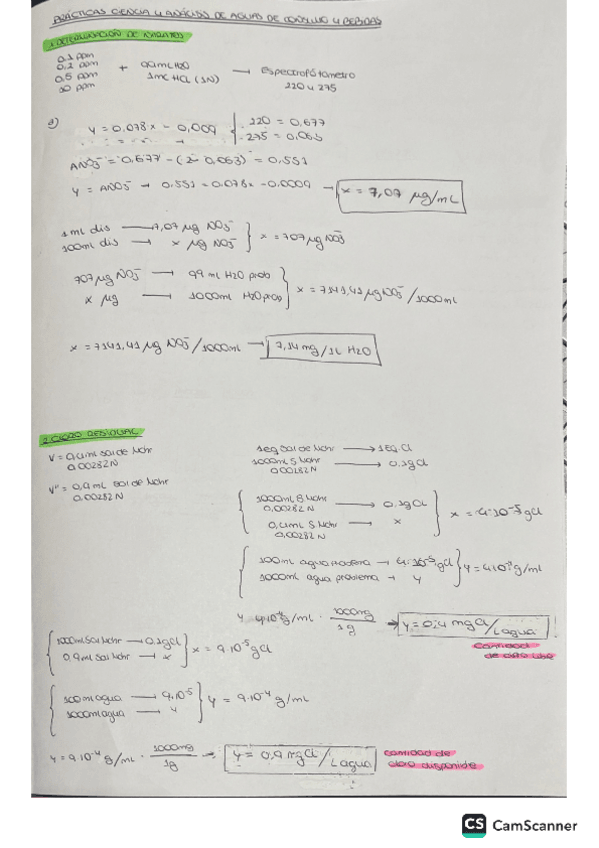 PRÁCTICAS CIENCIA Y ANÁLISIS DE AGUAS DE CONSUMO Y BEBIDAS
1. DETERMINACIÓN DE NITRATOS
0,1 ppm
0,2 ppm
0,5 ppm
10 ppm
+ 99mL H2O
1mL HCl (1N)
→ espectrofotómetro
220 y 275
a)
y = 0,078x - 0,009 { 220 = 0,677
275 = 0,063
ANO3⁻ = 0,677 - (2· 0,063) = 0,551
y = ANO3⁻ → 0,551 = 0,078x - 0,0009 → x = 7,07 µg/mL
1 mL dis → 7,07 µg NO3⁻
100mL dis → x µg NO3⁻ } x = 707 µg NO3⁻
707 µg NO3⁻ → 99 mL H2O prob
x µg → 1000mL H2O prob } x = 7141,41 µg NO3⁻/1000mL
x = 7141,41 µg NO3⁻/1000mL → 7,14 mg/1L H2O
2. CLORO RESIDUAL
V = 0,4mL sal de Mohr
0,00282N
V'' = 0,9mL sal de Mohr
0,00282N
1eq sal de Mohr → 1eq. Cl
1000mL S Mohr → 0,1gCl
0,00282N
1000mL S Mohr → 0,1gCl
0,00282N
0,4mL S Mohr → x
0,00282N
} x = 4·10⁻⁵ gCl
100mL agua problema → 4·10⁻⁵ gCl
1000mL agua problema → y } y = 4·10⁻⁴ g/mL
y 4·10⁻⁴ g/mL · 1000mg/1g → y = 0,4 mgCl/L agua
cantidad
de cloro libre
1000mL sal Mohr → 0,1gCl
0,9mL sal Mohr → x } x = 9·10⁻⁵ gCl
100ml agua → 9·10⁻⁵
1000ml agua → y } y = 9·10⁻⁴ g/mL
y = 9·10⁻⁴ g/mL · 1000mg/1g → y = 0,9 mgCl/L agua
cantidad de
cloro disponible
CS CamScanner